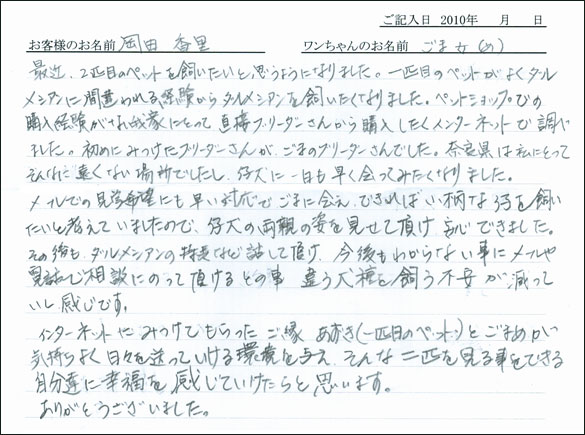 ご記入日 2010年　　月　　日
お客様のお名前 岡田 香里　　ワンちゃんのお名前 ごま女(め)
最近、2匹目のペットを飼いたいと思うようになりました。一匹目のペットがよくダル
メシアンに間違われる経験からダルメシアンを飼いたくなりました。ペットショップでの
購入経験がない我家にとって直接ブリーダーさんから購入したくインターネットで調べ
ました。初めにみつけたブリーダーさんが、ごまのブリーダーさんでした。奈良県は私にとって
そんなに遠くない場所でしたし、仔犬に一日も早く会ってみたくなりました。
メールでの見学希望にも早い対応でごまに会え、できれば小柄な子を飼い
たいと考えていましたので、仔犬の両親の姿を見せて頂け安心できました。
その後も、ダルメシアンの特長など話して頂け、今後もわからない事にメールや
電話で相談にのって頂けるとの事 違う犬種を飼う不安が減って
いく感じです。
インターネットにみつけてもらったご縁 あずき(一匹目のペット)とごまめが
気持ちよく日々を送っていける環境を与え そんな二匹を見る事をできる
自分達に幸福を感じていけたらと思います。
ありがとうございました。